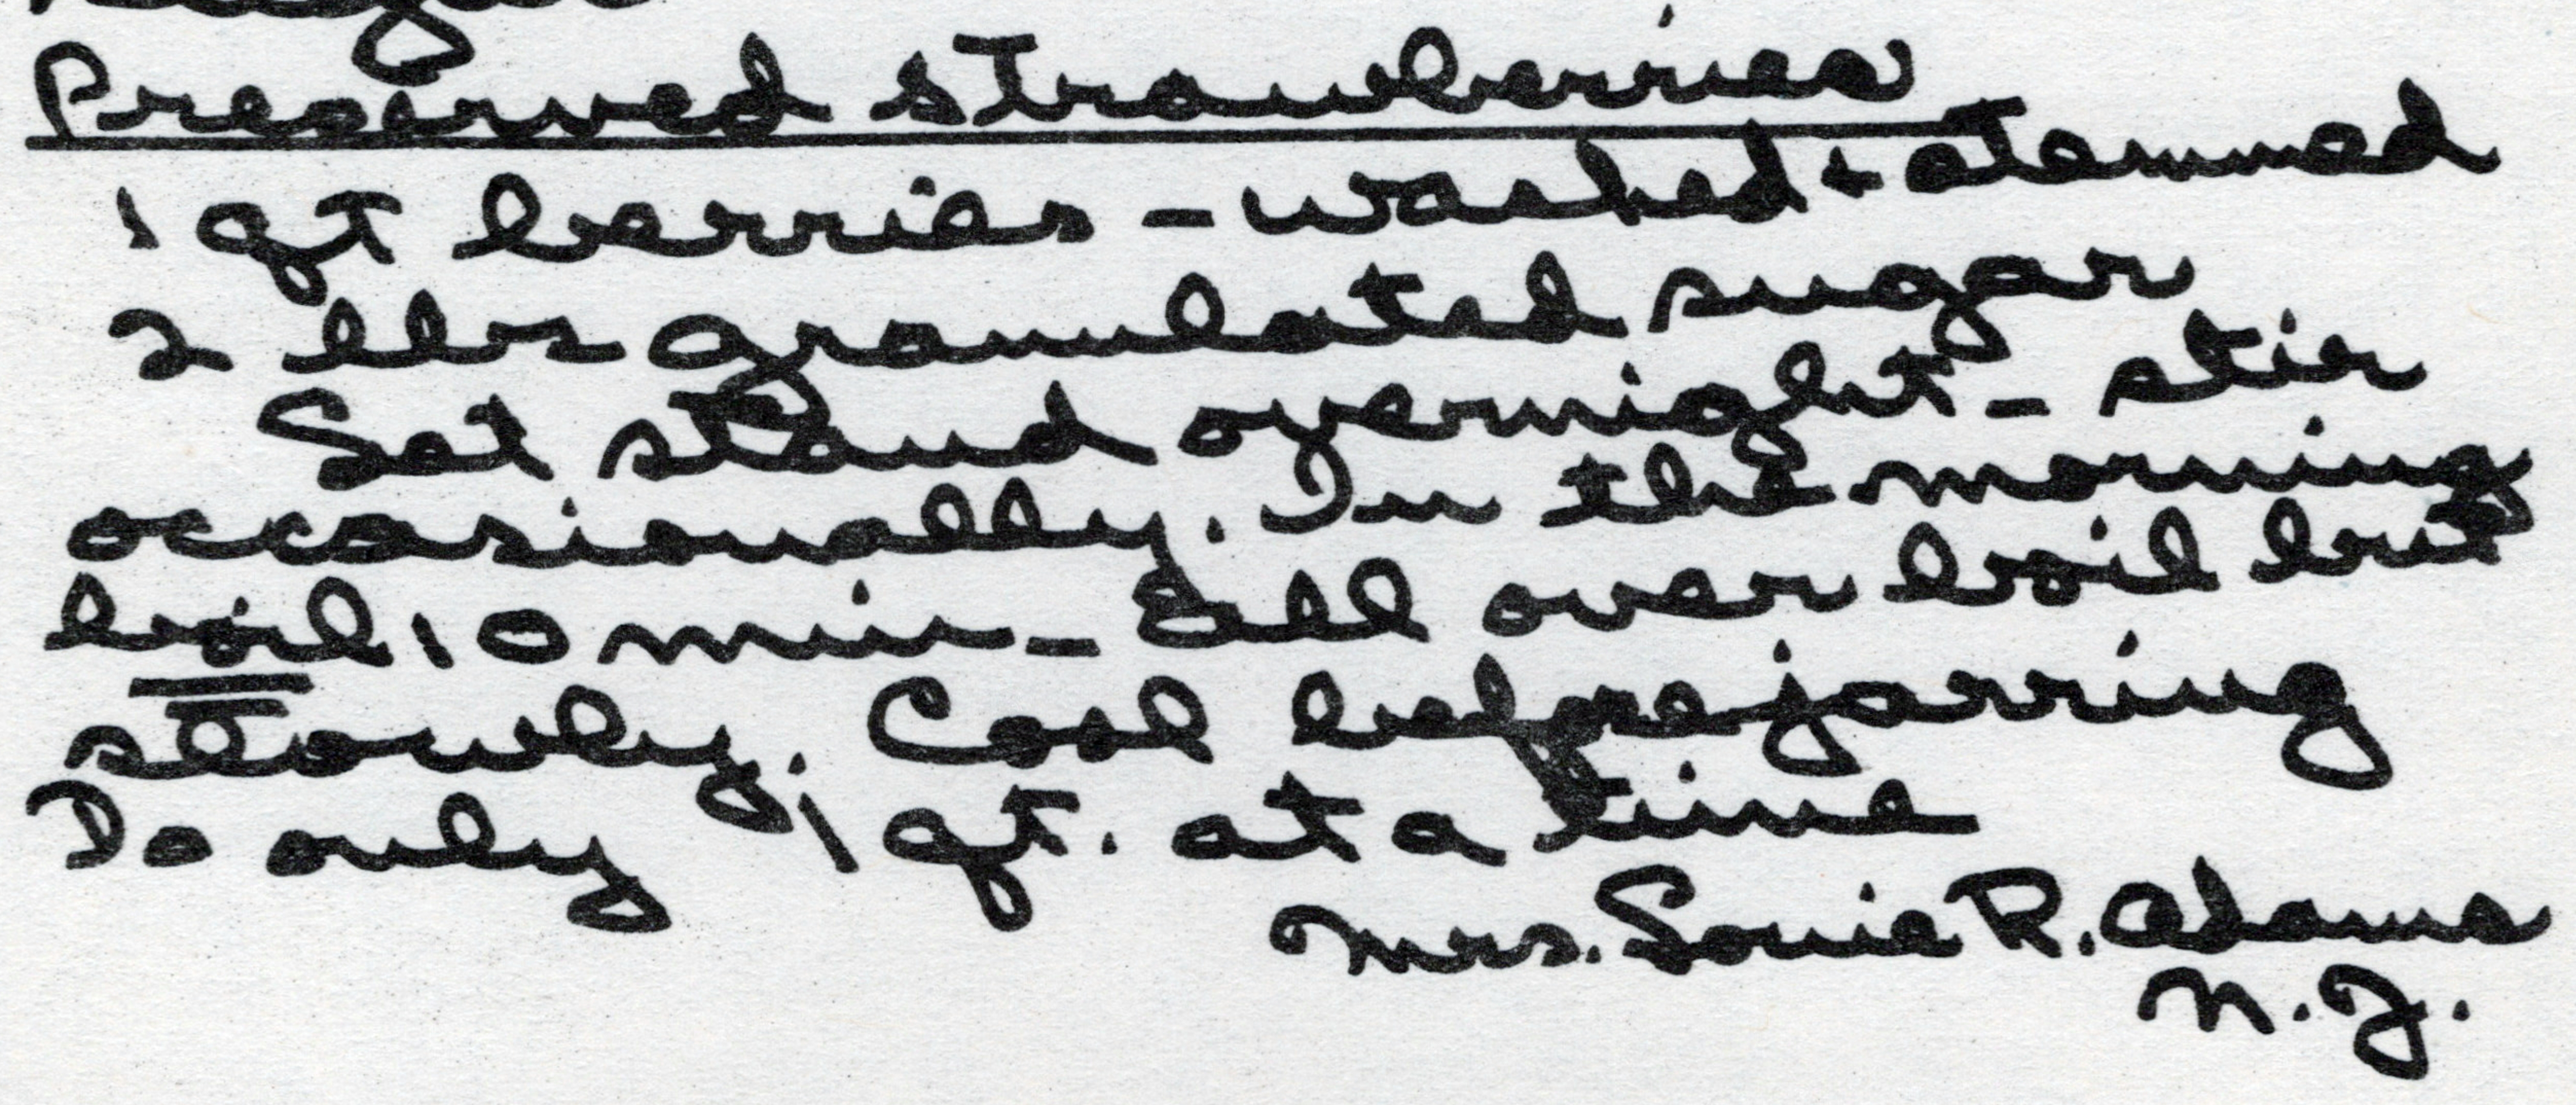 Preserved strawberries
1 qt berries - washed + stemmed
2 lbs granulated sugar
Let stand overnight - stir
occasionally. In the morning
boil 10 min - all over boil but
slowly. Cool before jarring
Do only 1 qt. at a time
Mrs. Louie R. Adams
N.J.